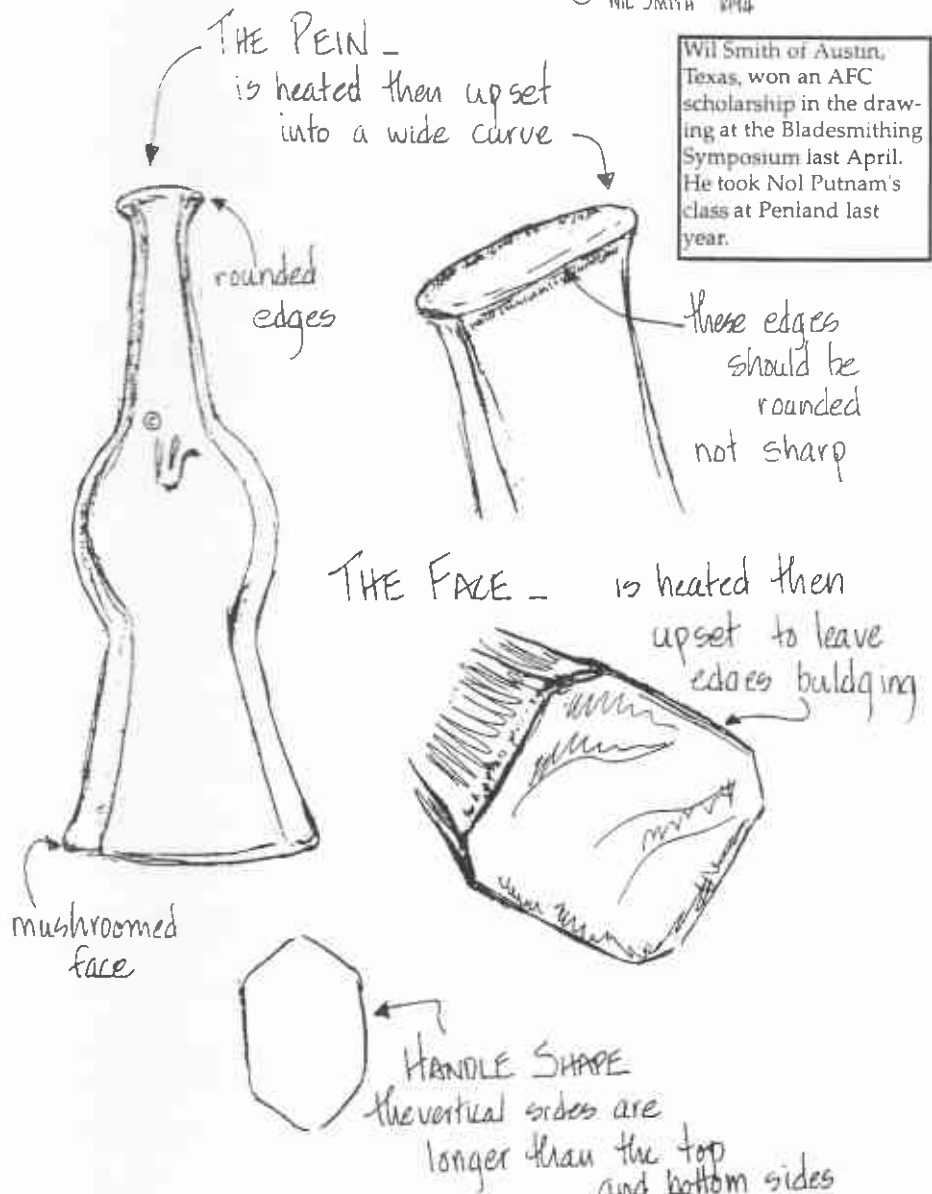 © WIL SMITH
THE PEIN -
is heated then upset
into a wide curve
Wil Smith of Austin,
Texas, won an AFC
scholarship in the draw-
ing at the Bladesmithing
Symposium last April.
He took Nol Putnam's
class at Penland last
year.
rounded
edges
these edges
should be
rounded
not sharp
©
THE FACE - is heated then
upset to leave
edges buldging
mushroomed
face
HANDLE SHAPE
the vertical sides are
longer than the top
and bottom sides